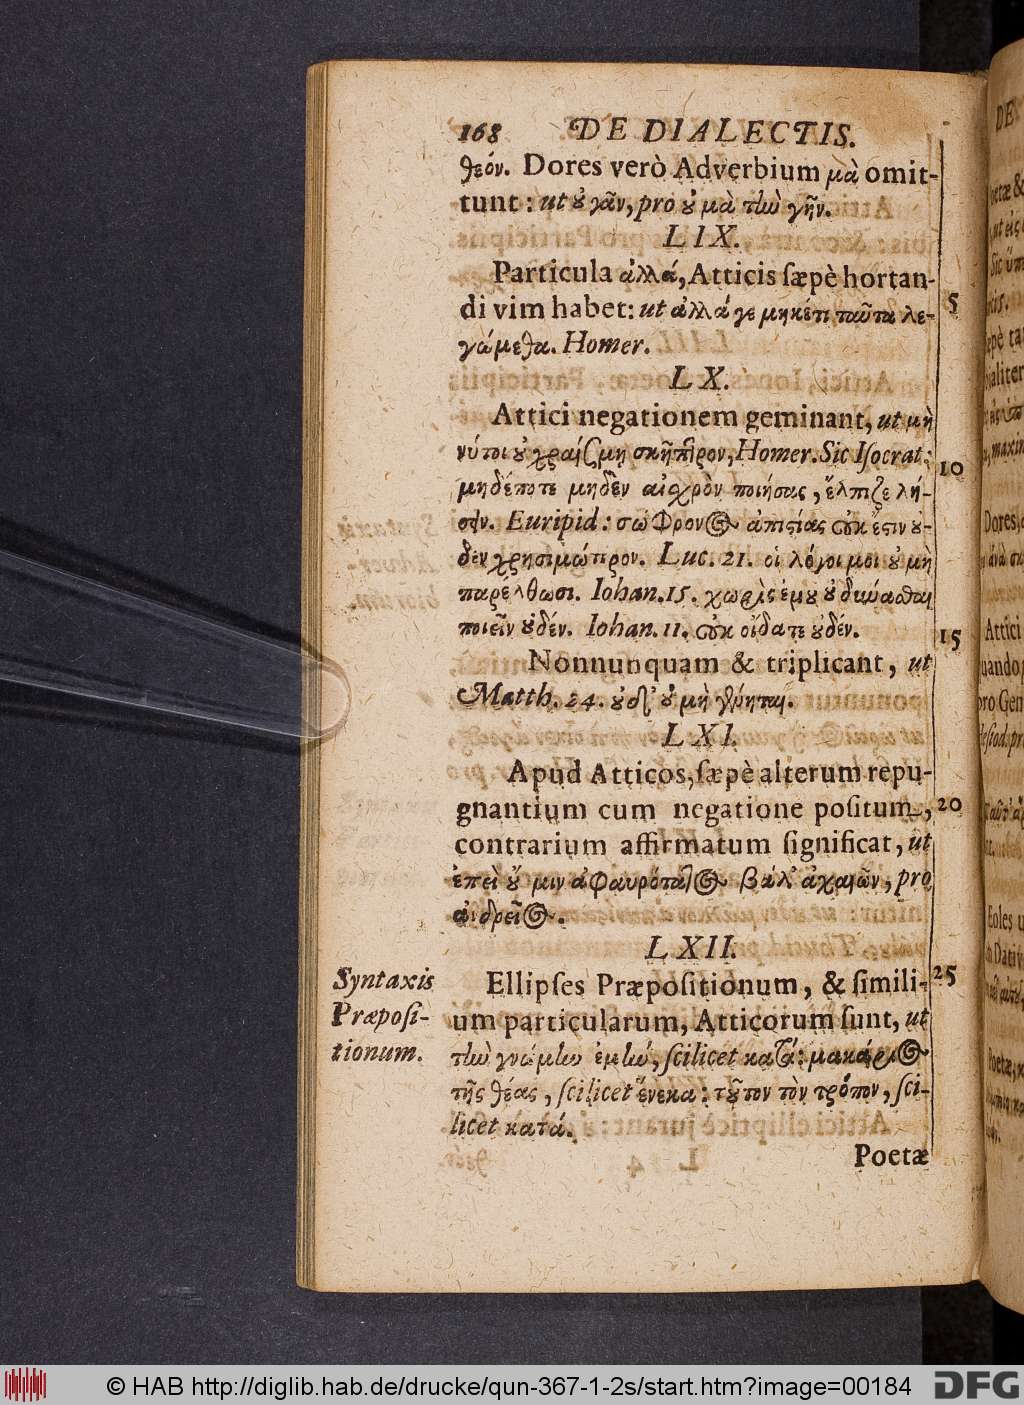 168 DE DIALECTIS.
θεόν. Dores verò Adverbium μὰ omit-
tunt: ut ȣ̓ γᾶν, pro ȣ̓ μὰ τὴν γῆν.
LIX.
Particula ἀλλά, Atticis sæpè hortan-
di vim habet: ut ἀλλά γε μηκέτι ταῦτα λε-
γώμεθα. Homer.
LX.
Attici negationem geminant, ut μὴ
νύ τοι ȣ̓ χραίσμῃ σκῆπτρον, Homer. Sic Isocrat:
μηδέποτε μηδὲν αἰσχρὸν ποιήσας, ἔλπιζε λή-
σειν. Euripid: σώφρονος ἀπιστίας οὐκ ἔστιν ȣ̓-
δὲν χρησιμώτερον. Luc. 21. οἱ λόγοι μοι ȣ̓ μὴ
παρέλθωσι. Iohan. 15. χωρὶς ἐμȣ ȣ̓ δύνασθαι
ποιεῖν ȣ̓δέν. Iohan. 11. οὐκ οἴδατε ȣ̓δέν.
Nonnunquam & triplicant, ut
Matth. 24. ȣ̓δ' ȣ̓ μὴ γένηται.
LXI.
Apud Atticos, sæpè alterum repu-
gnantium cum negatione positum,
contrarium affirmatum significat, ut
ἐπεὶ ȣ̓́ μιν ἀφαυρότατος βάλ' ἀχαιῶν, pro
LXII.
Syntaxis
Præposi-
tionum.
Ellipses Præpositionum, & simili-
um particularum, Atticorum sunt, ut
τὴν γνώμην ἐμὴν, scilicet κατά: μακάριος
τῆς θέας, scilicet ἕνεκα: τȣ͂τον τὸν τρόπον, sci-
licet κατά.
Poetæ
5
10
15
20
25
© HAB http://diglib.hab.de/drucke/qun-367-1-2s/start.htm?image=00184
DFG